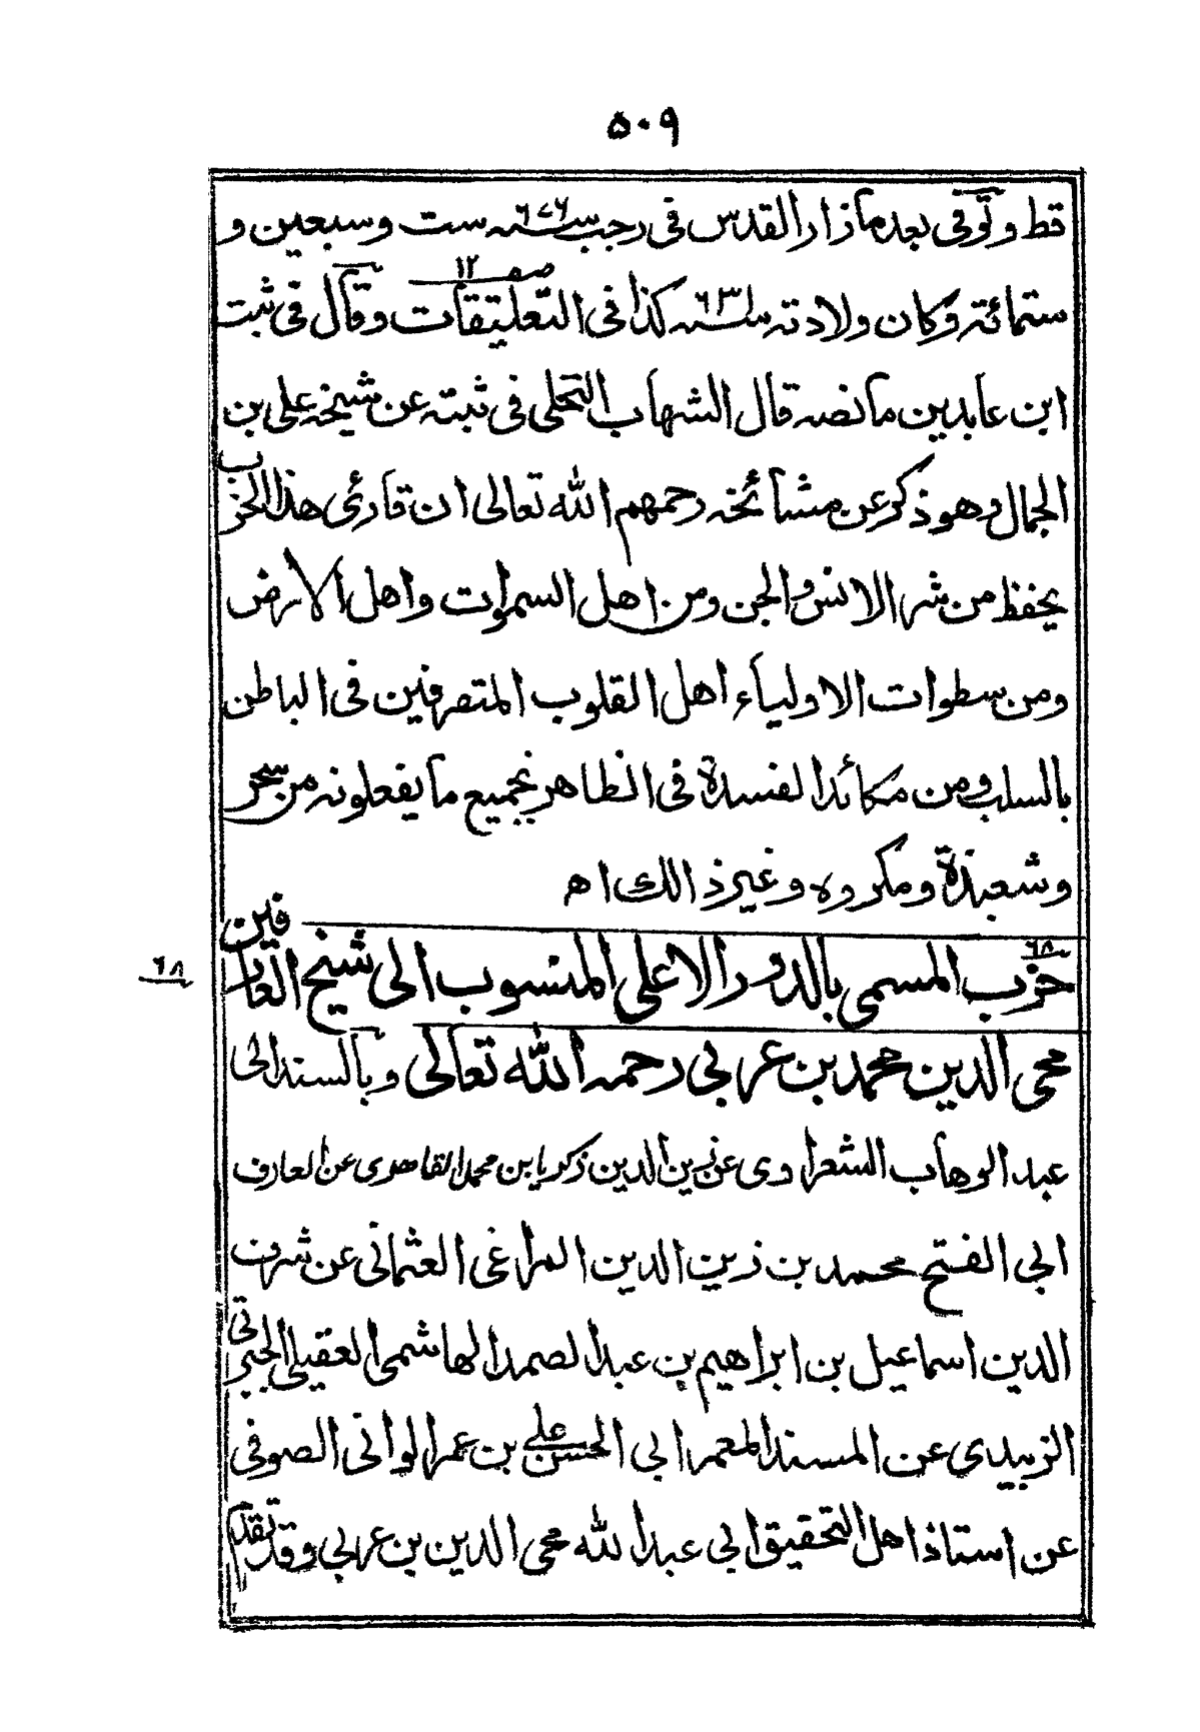 ٥٠٩
قط وتوفى بعد ما زار القدس فى رجب سنه ٦٧٦ ست وسبعين و
ستمائة وكان ولادته سنه ٦٣١ كذا فى التعليقات صـ ١٢ وقال فى ثبت
ابن عابدين ما نصه قال الشهاب النخلى فى ثبته عن شيخه على بن
الجمال وهو ذكر عن مشائخه رحمهم الله تعالى ان قارئ هذا الحزب
يحفظ من شر الانس والجن ومن اهل السموات واهل الارض
ومن سطوات الاولياء اهل القلوب المتصرفين فى الباطن
بالسلب ومن مكائد الفسدة فى الظاهر بجميع ما يفعلونه من سحر
وشعبذة ومكروه وغير ذالك اھ
٦٨ حزب المسمى بالدور الاعلى المنسوب الى شيخ العارفين
٦٨
محى الدين محمد بن عربى رحمه الله تعالى وبالسند الى
عبد الوهاب الشعراوى عن زين الدين زكريا بن محمد القاهوى عن العارف
ابى الفتح محمد بن زين الدين المراغى العثمانى عن شرف
الدين اسماعيل بن ابراهيم بن عبد الصمد الهاشمى العقيلى الجبرتى
الزبيدى عن المسند المعمر ابى الحسن على بن عمر الوانى الصوفى
عن استاذ اهل التحقيق ابى عبد الله محى الدين بن عربى وقد تقدم